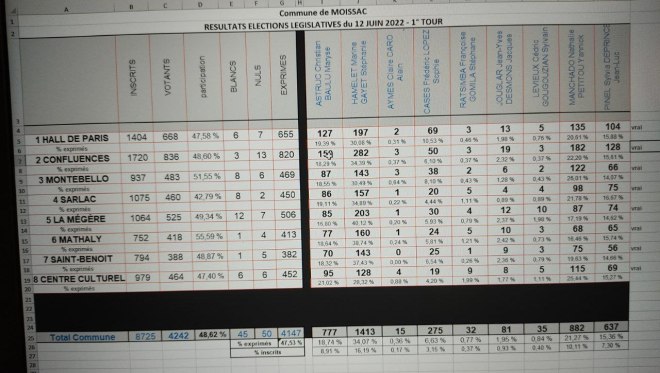 Commune de MOISSAC
RESULTATS ELECTIONS LEGISLATIVES du 12 JUIN 2022 - 1° TOUR
INSCRITS VOTANTS participation BLANCS NULS EXPRIMÉS ASTRUC Christian BAULU Maryse HAMELET Marine GAYET Stéphanie AYMES Claire CARO Alain CASES Frédéric LOPEZ Sophie RATSIMBA Françoise GOMILA Stéphane JOUGLAR Jean-Yves DESMONS Jacques LEVIEUX Cédric GOUGOUZIAN Sylvain MANCHADO Nathalie PETITOU Yannick PINEL Sylvia DEPRINCE Jean-Luc
1 HALL DE PARIS 1404 668 47,58 % 6 7 655 127 197 2 69 3 13 5 135 104 vrai
% exprimés 19,39 % 30,08 % 0,31 % 10,53 % 0,46 % 1,98 % 0,76 % 20,61 % 15,88 %
2 CONFLUENCES 1720 836 48,60 % 3 13 820 150 282 3 50 3 19 3 182 128 vrai
% exprimés 18,29 % 34,39 % 0,37 % 6,10 % 0,37 % 2,32 % 0,37 % 22,20 % 15,61 %
3 MONTEBELLO 937 483 51,55 % 8 6 469 87 143 3 38 2 6 2 122 66 vrai
% exprimés 18,55 % 30,49 % 0,64 % 8,10 % 0,43 % 1,28 % 0,43 % 26,01 % 14,07 %
4 SARLAC 1075 460 42,79 % 8 2 450 86 157 1 20 5 4 4 98 75 vrai
% exprimés 19,11 % 34,89 % 0,22 % 4,44 % 1,11 % 0,89 % 0,89 % 21,78 % 16,67 %
5 LA MÉGÈRE 1064 525 49,34 % 12 7 506 85 203 1 30 4 12 10 87 74 vrai
% exprimés 16,80 % 40,12 % 0,20 % 5,93 % 0,79 % 2,37 % 1,98 % 17,19 % 14,62 %
6 MATHALY 752 418 55,59 % 1 4 413 77 160 1 24 5 10 3 68 65 vrai
% exprimés 18,64 % 38,74 % 0,24 % 5,81 % 1,21 % 2,42 % 0,73 % 16,46 % 15,74 %
7 SAINT-BENOIT 794 388 48,87 % 1 5 382 70 143 0 25 1 9 3 75 56 vrai
% exprimés 18,32 % 37,43 % 0,00 % 6,54 % 0,26 % 2,36 % 0,79 % 19,63 % 14,66 %
8 CENTRE CULTUREL 979 464 47,40 % 6 6 452 95 128 4 19 9 8 5 115 69 vrai
% exprimés 21,02 % 28,32 % 0,88 % 4,20 % 1,99 % 1,77 % 1,11 % 25,44 % 15,27 %
Total Commune 8725 4242 48,62 % 45 50 4147 777 1413 15 275 32 81 35 882 637
% exprimés 47,53 % 18,74 % 34,07 % 0,36 % 6,63 % 0,77 % 1,95 % 0,84 % 21,27 % 15,36 %
% inscrits 8,91 % 16,19 % 0,17 % 3,15 % 0,37 % 0,93 % 0,40 % 10,11 % 7,30 %